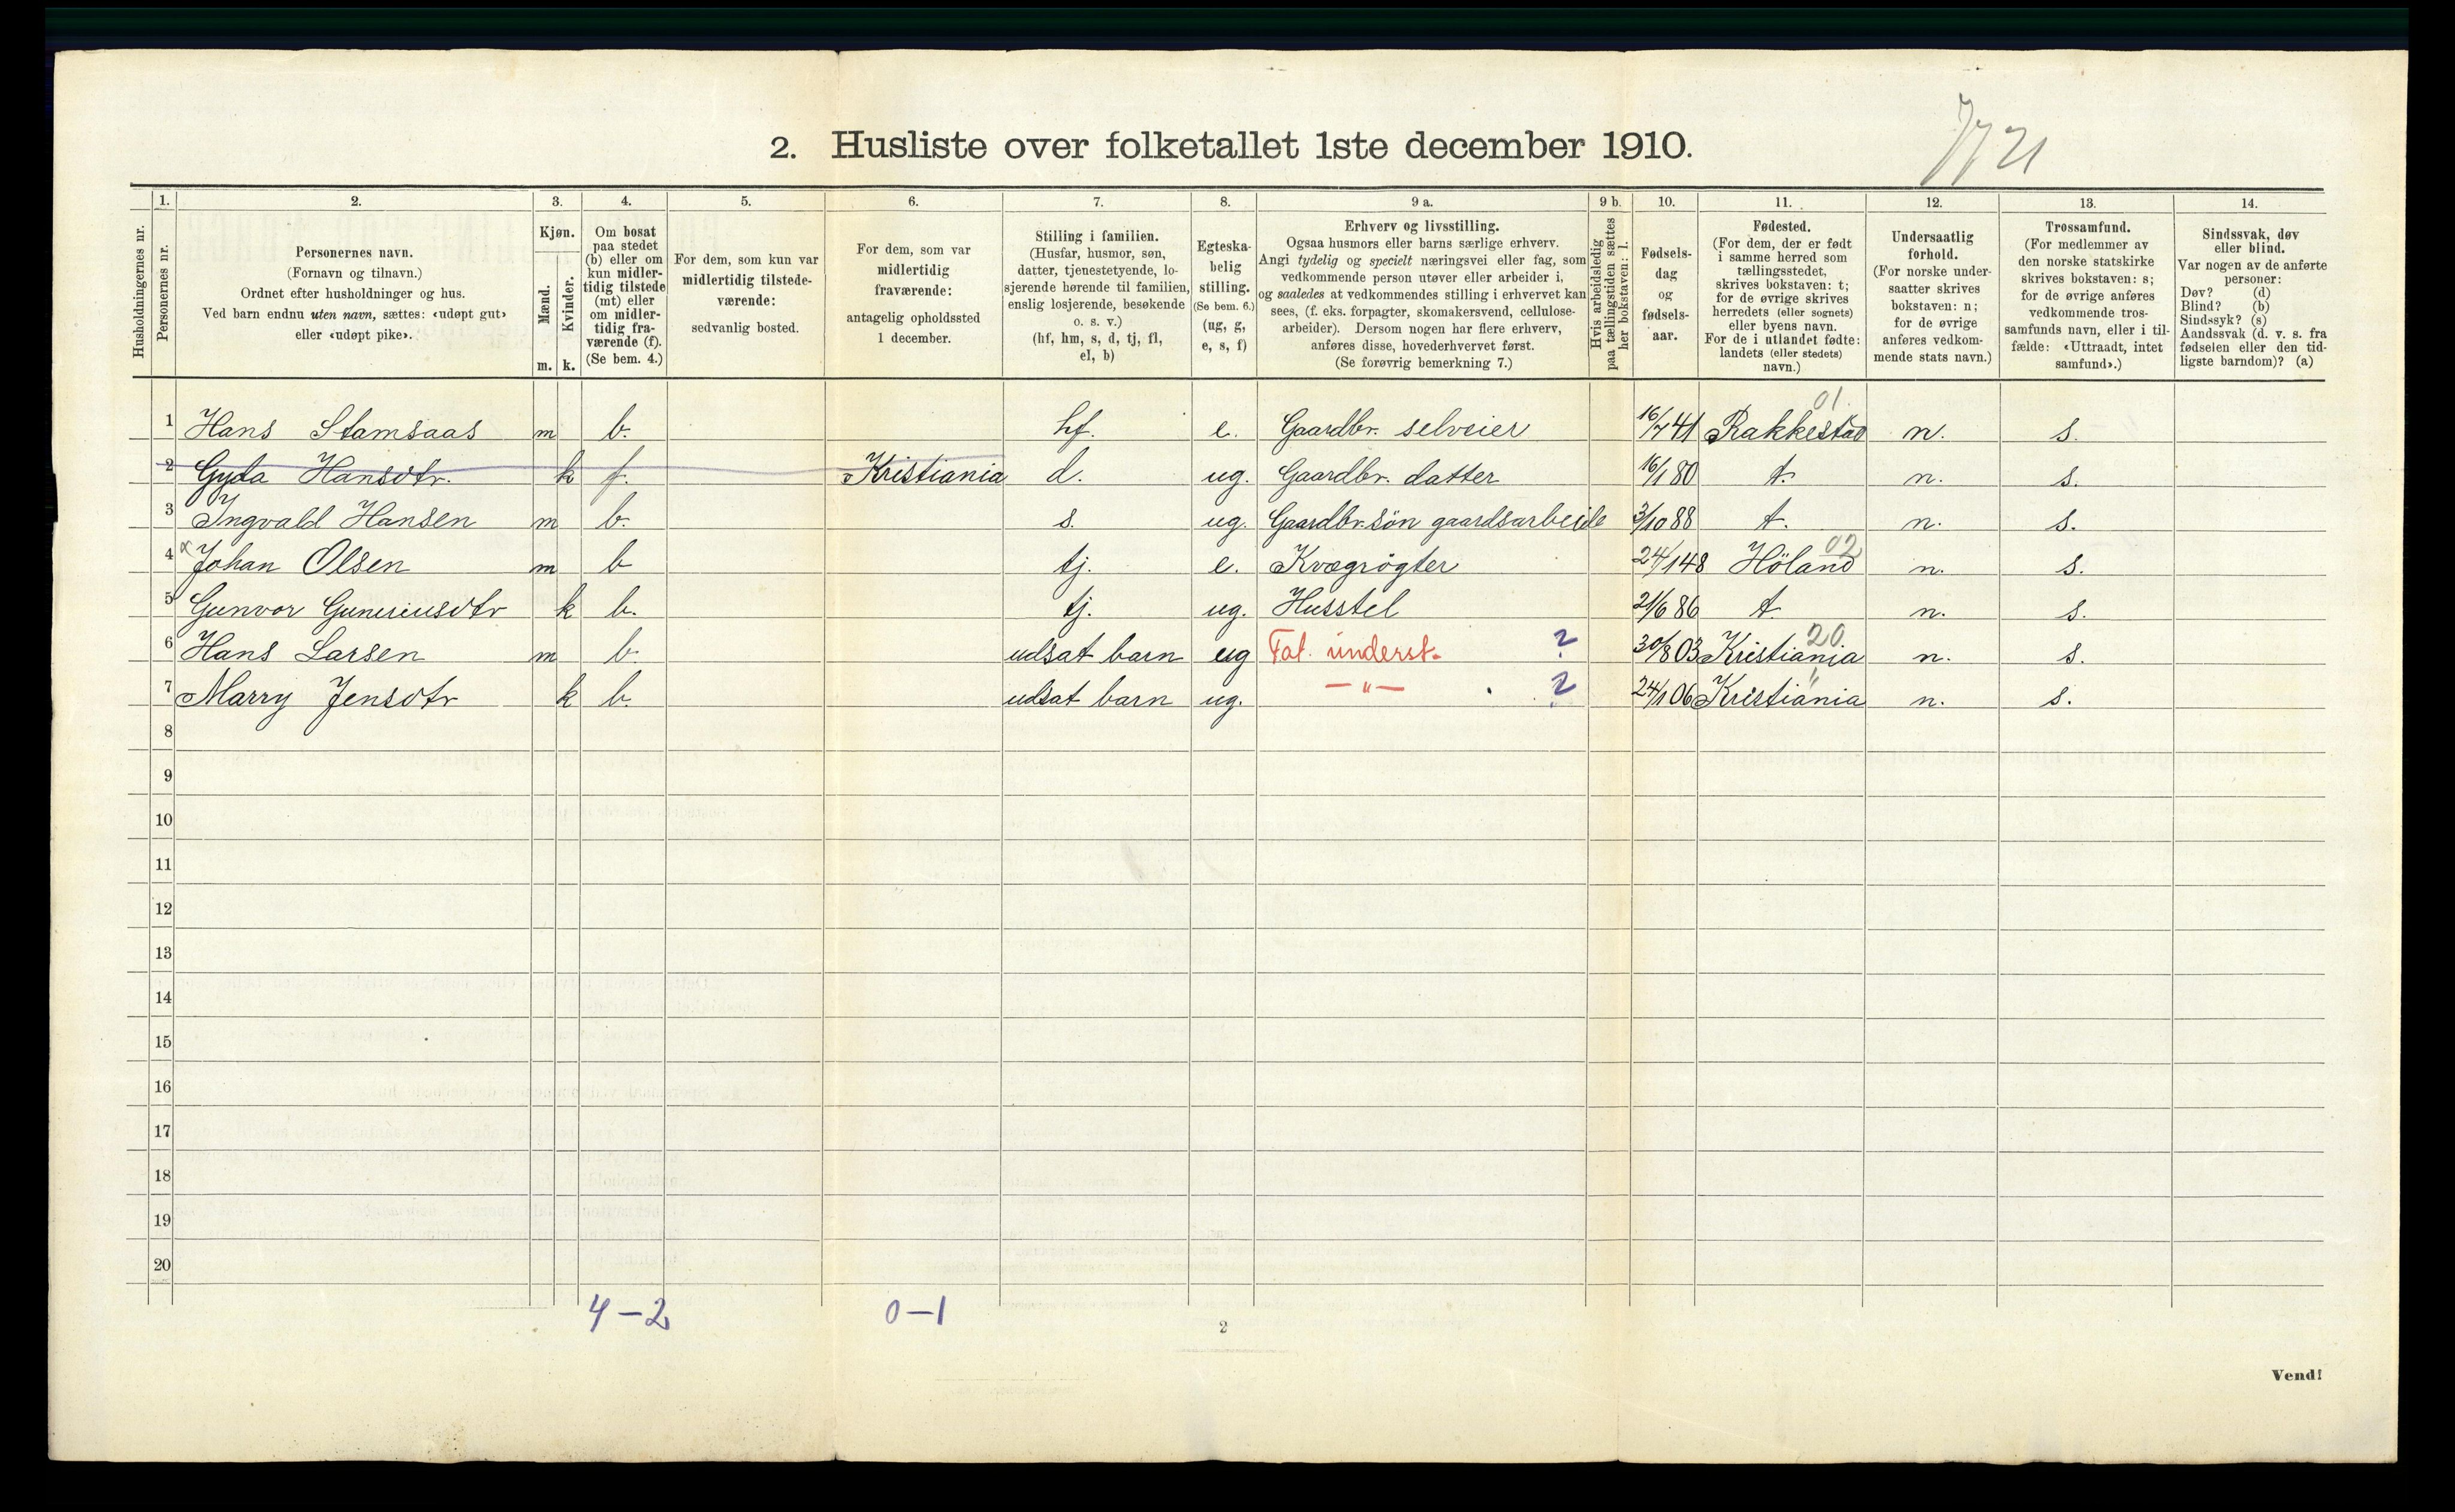 7721
2. Husliste over folketallet 1ste december 1910.
Husholdningernes nr.
1. Personernes nr.
2. Personernes navn.
(Fornavn og tilnavn.)
Ordnet efter husholdninger og hus.
Ved barn endnu uten navn, sættes: «udøpt gut»
eller «udøpt pike».
3. Kjøn.
Mænd. m.
Kvinder. k.
4. Om bosat
paa stedet
(b) eller om
kun midler-
tidig tilstede
(mt) eller
om midler-
tidig fra-
værende (f).
(Se bem. 4.)
5. For dem, som kun var
midlertidig tilstede-
værende:
sedvanlig bosted.
6. For dem, som var
midlertidig
fraværende:
antagelig opholdssted
1 december.
7. Stilling i familien.
(Husfar, husmor, søn,
datter, tjenestetyende, lo-
sjerende hørende til familien,
enslig losjerende, besøkende
o. s. v.)
(hf, hm, s, d, tj, fl,
el, b)
8. Egteska-
belig
stilling.
(Se bem. 6.)
(ug, g,
e, s, f)
9 a. Erhverv og livsstilling.
Ogsaa husmors eller barns særlige erhverv.
Angi tydelig og specielt næringsvei eller fag, som
vedkommende person utøver eller arbeider i,
og saaledes at vedkommendes stilling i erhvervet kan
sees, (f. eks. forpagter, skomakersvend, cellulose-
arbeider). Dersom nogen har flere erhverv,
anføres disse, hovederhvervet først.
(Se forøvrig bemerkning 7.)
9 b. Hvis arbeidsledig
paa tællingstiden sættes
her bokstaven: l.
10. Fødsels-
dag
og
fødsels-
aar.
11. Fødested.
(For dem, der er født
i samme herred som
tællingsstedet,
skrives bokstaven: t;
for de øvrige skrives
herredets (eller sognets)
eller byens navn.
For de i utlandet fødte:
landets (eller stedets)
navn.)
12. Undersaatlig
forhold.
(For norske under-
saatter skrives
bokstaven: n;
for de øvrige
anføres vedkom-
mende stats navn.)
13. Trossamfund.
(For medlemmer av
den norske statskirke
skrives bokstaven: s;
for de øvrige anføres
vedkommende tros-
samfunds navn, eller i til-
fælde: «Uttraadt, intet
samfund».)
14. Sindssvak, døv
eller blind.
Var nogen av de anførte
personer:
Døv? (d)
Blind? (b)
Sindssyk? (s)
Aandssvak (d. v. s. fra
fødselen eller den tid-
ligste barndom)? (a)
01.
1 Hans Stamsaas m b. hf. e. Gaardbr. selveier 16/7 41 Rakkestad n. s.
2 Gyda Hansdtr. k f. Kristiania d. ug. Gaardbr. datter 16/1 80 t. n. s.
3 Ingvald Hansen m b. s. ug. Gaardbr. søn gaardsarbeide 3/10 88 t. n. s.
02
4 x Johan Olsen m b tj. e. Kvægrøgter 24/1 48 Höland n. s.
5 Gunvor Guneriusdtr k b. tj. ug. Husstel 21/6 86 t. n. s.
20
6 Hans Larsen m b. udsat barn ug Fat. underst. ? 30/8 03 Kristiania n. s.
"
7 Marry Jensdtr k b. udsat barn ug. — " — ? 24/1 06 Kristiania n. s.
8
9
10
11
12
13
14
15
16
17
18
19
20
4 – 2 0 – 1
2
Vend!